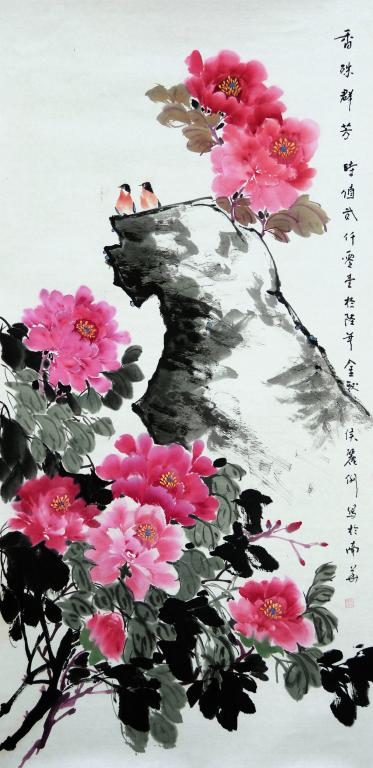 香殊群芳 時值貳仟零壹拾陸年金秋 侯麗娜 寫於南華